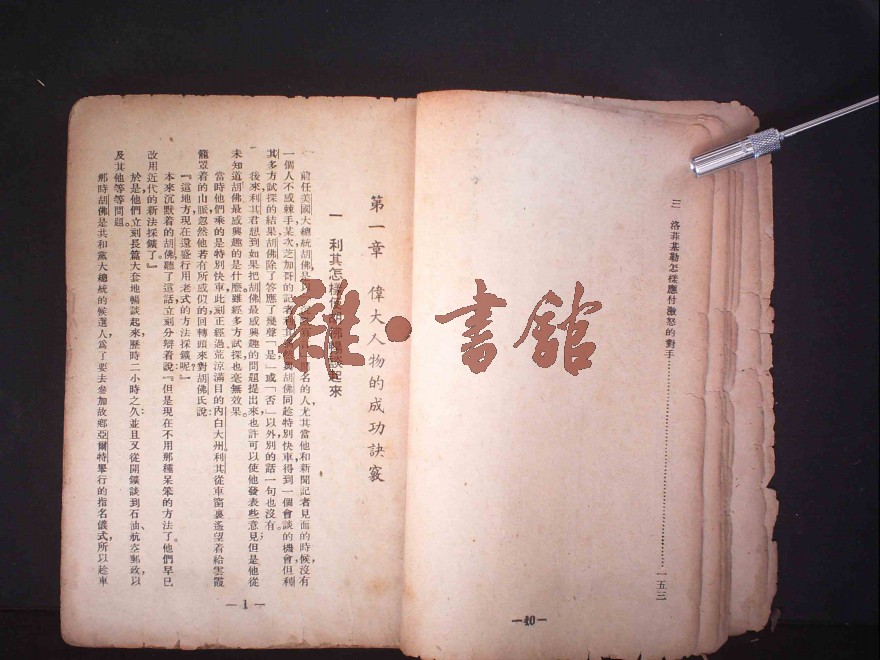 三　洛菲基勒怎樣應付激怒的對手…………一五三
—10—
第一章　偉大人物的成功訣竅
一　利其怎樣使　　　談起來
前任美國大總統胡佛是　　　名的人尤其當他和新聞記者見面的時候，沒有
一個人不感棘手某次芝加哥的記者利其　　與胡佛同趁特別快車，得到一個會談的機會但利
其多方試探的結果，胡佛除了答應了幾聲「是」或「否」以外，別的話一句也沒有。
後來利其君想到如果把胡佛最感興趣的問題提出來，也許可以使他發表些意見；但是他從
未知道胡佛最感興趣的是什麼，雖經多方試探也毫無效果。
當時他們乘的是特別快車，此刻正經過荒涼滿目的內白大州。利其從車窗裏遙望着給雲霞
籠罩着的山脈，忽然他若有所感似的回轉頭來對胡佛氏說：
『這地方現在還盛行用老式的方法採鑛呢？』
本來沉默着的胡佛，聽了這話，立刻分辯着說：『但是現在不用那種呆笨的方法了。他們早已
改用近代的新法採鑛了。』
於是，他們立刻長篇大套地暢談起來，歷時二小時之久；並且又從開鑛談到石油、航空郵政，以
及其他等等問題。
那時胡佛是共和黨大總統的候選人，爲了要去參加故鄉亞爾特舉行的指名儀式，所以趁車
—1—
雜·書館